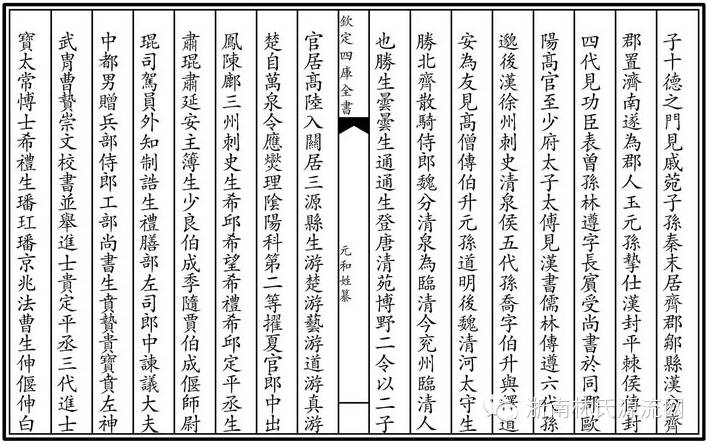 子十德之門見戚苑子孫秦末居齊郡鄒縣漢分齊
郡置濟南遂為郡人玉元孫摯仕漢封平棘侯傳封
四代見功臣表曽孫林遵字長賔受尚書於同郡歐
陽髙官至少府太子太傅見漢書儒林傳遵六代孫
邈後漢徐州刺史清泉侯五代孫喬字伯升與澤道
安為友見髙僧傳伯升元孫道明後魏清河太守生
勝北齊散騎侍郎魏分清泉為臨清今兗州臨清人
也勝生曇曇生通通生登唐清苑博野二令以二子
欽定四庫全書
元和姓纂
官居髙陸入關居三源縣生游楚游藝游道游真游
楚自萬泉令應燮理陰陽科第二等擢夏官郎中出
鳳陳鄜三州刺史生希邱希望希禮希邱定平丞生
肅琨肅延安主薄生少良伯成季隨貫伯成偃師尉
琨司駕員外知制誥生禮膳部左司郎中諫議大夫
中都男贈兵部侍郎工部尚書生賁贄貴寶賁左神
武胄曹贄崇文校書並舉進士貴定平丞三代進士
寶太常博士希禮生璠玒璠京兆法曹生伸偃伸白
浙南林氏源流网